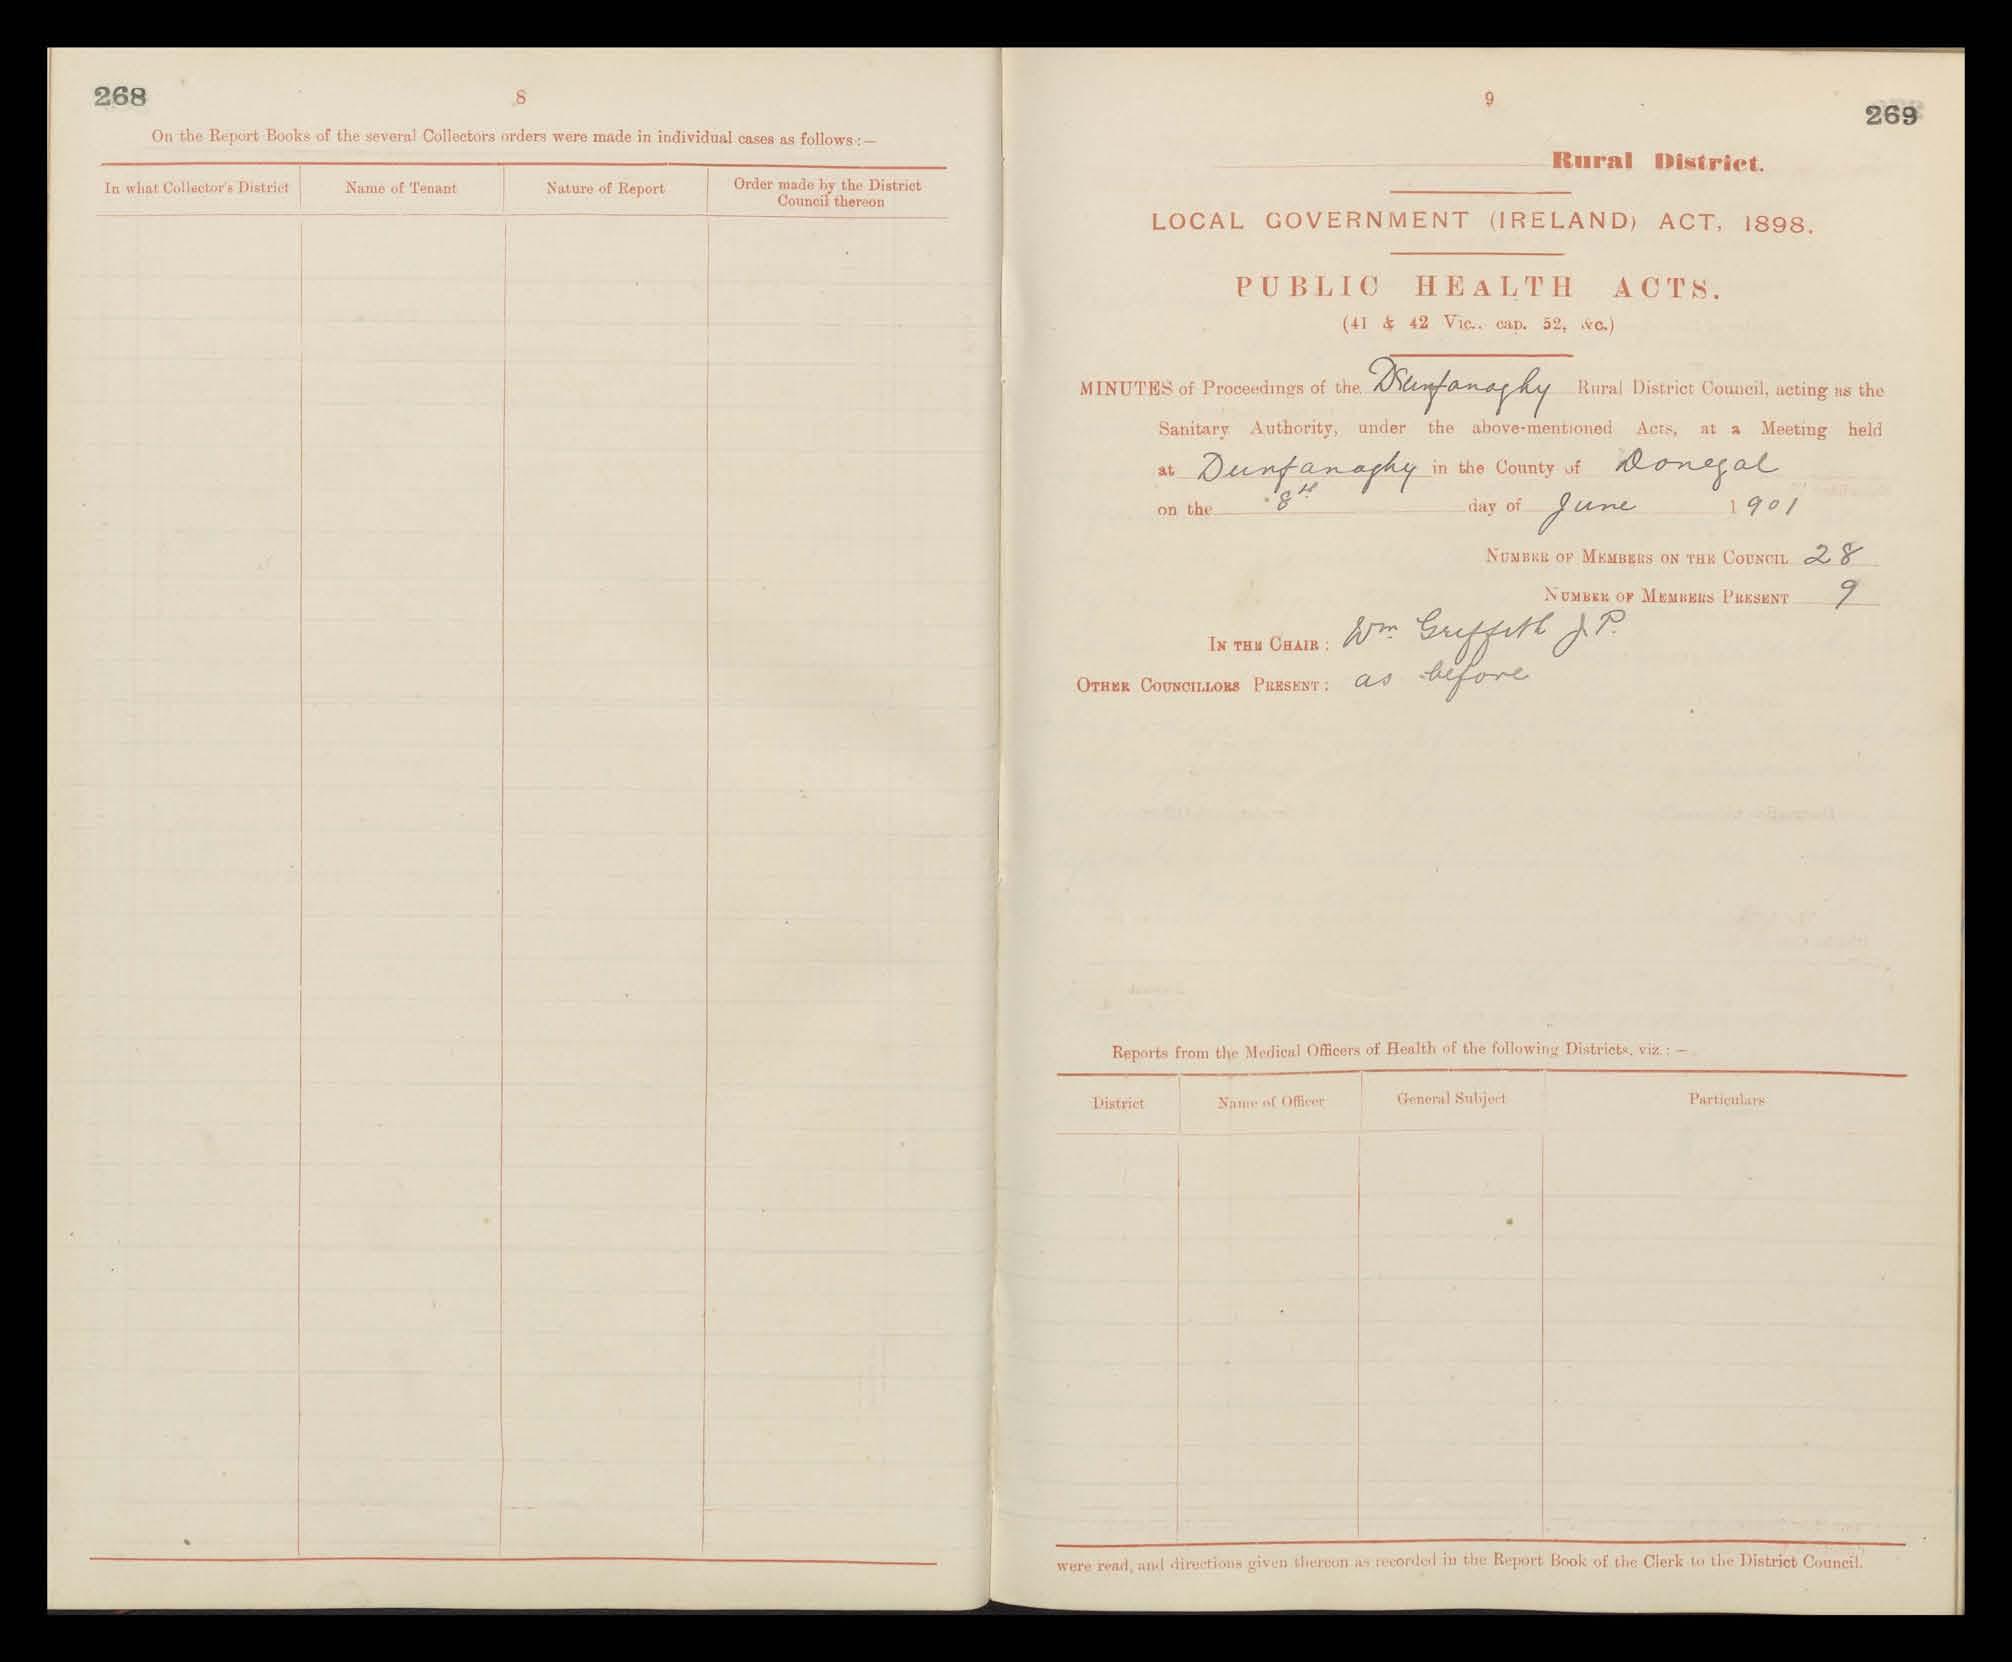 268
8
On the Report Books of the several Collectors orders were made in individual cases as follows:—
In what Collector's District
Name of Tenant
Nature of Report
Order made by the District
Council thereon
9
269
Rural District.
LOCAL GOVERNMENT (IRELAND) ACT, 1898.
PUBLIC HEALTH ACTS.
(41 & 42 Vic., cap. 52, &c.)
MINUTES of Proceedings of the Dunfanaghy Rural District Council, acting as the
Sanitary Authority, under the above-mentioned Acts, at a Meeting held
at Dunfanaghy in the County of Donegal
on the 8th day of June 1901
NUMBER OF MEMBERS ON THE COUNCIL 28
NUMBER OF MEMBERS PRESENT 9
IN THE CHAIR: Wm. Griffith J.P.
OTHER COUNCILLORS PRESENT: as before
Reports from the Medical Officers of Health of the following Districts, viz.:—
District
Name of Officer
General Subject
Particulars
were read, and directions given thereon as recorded in the Report Book of the Clerk to the District Council.